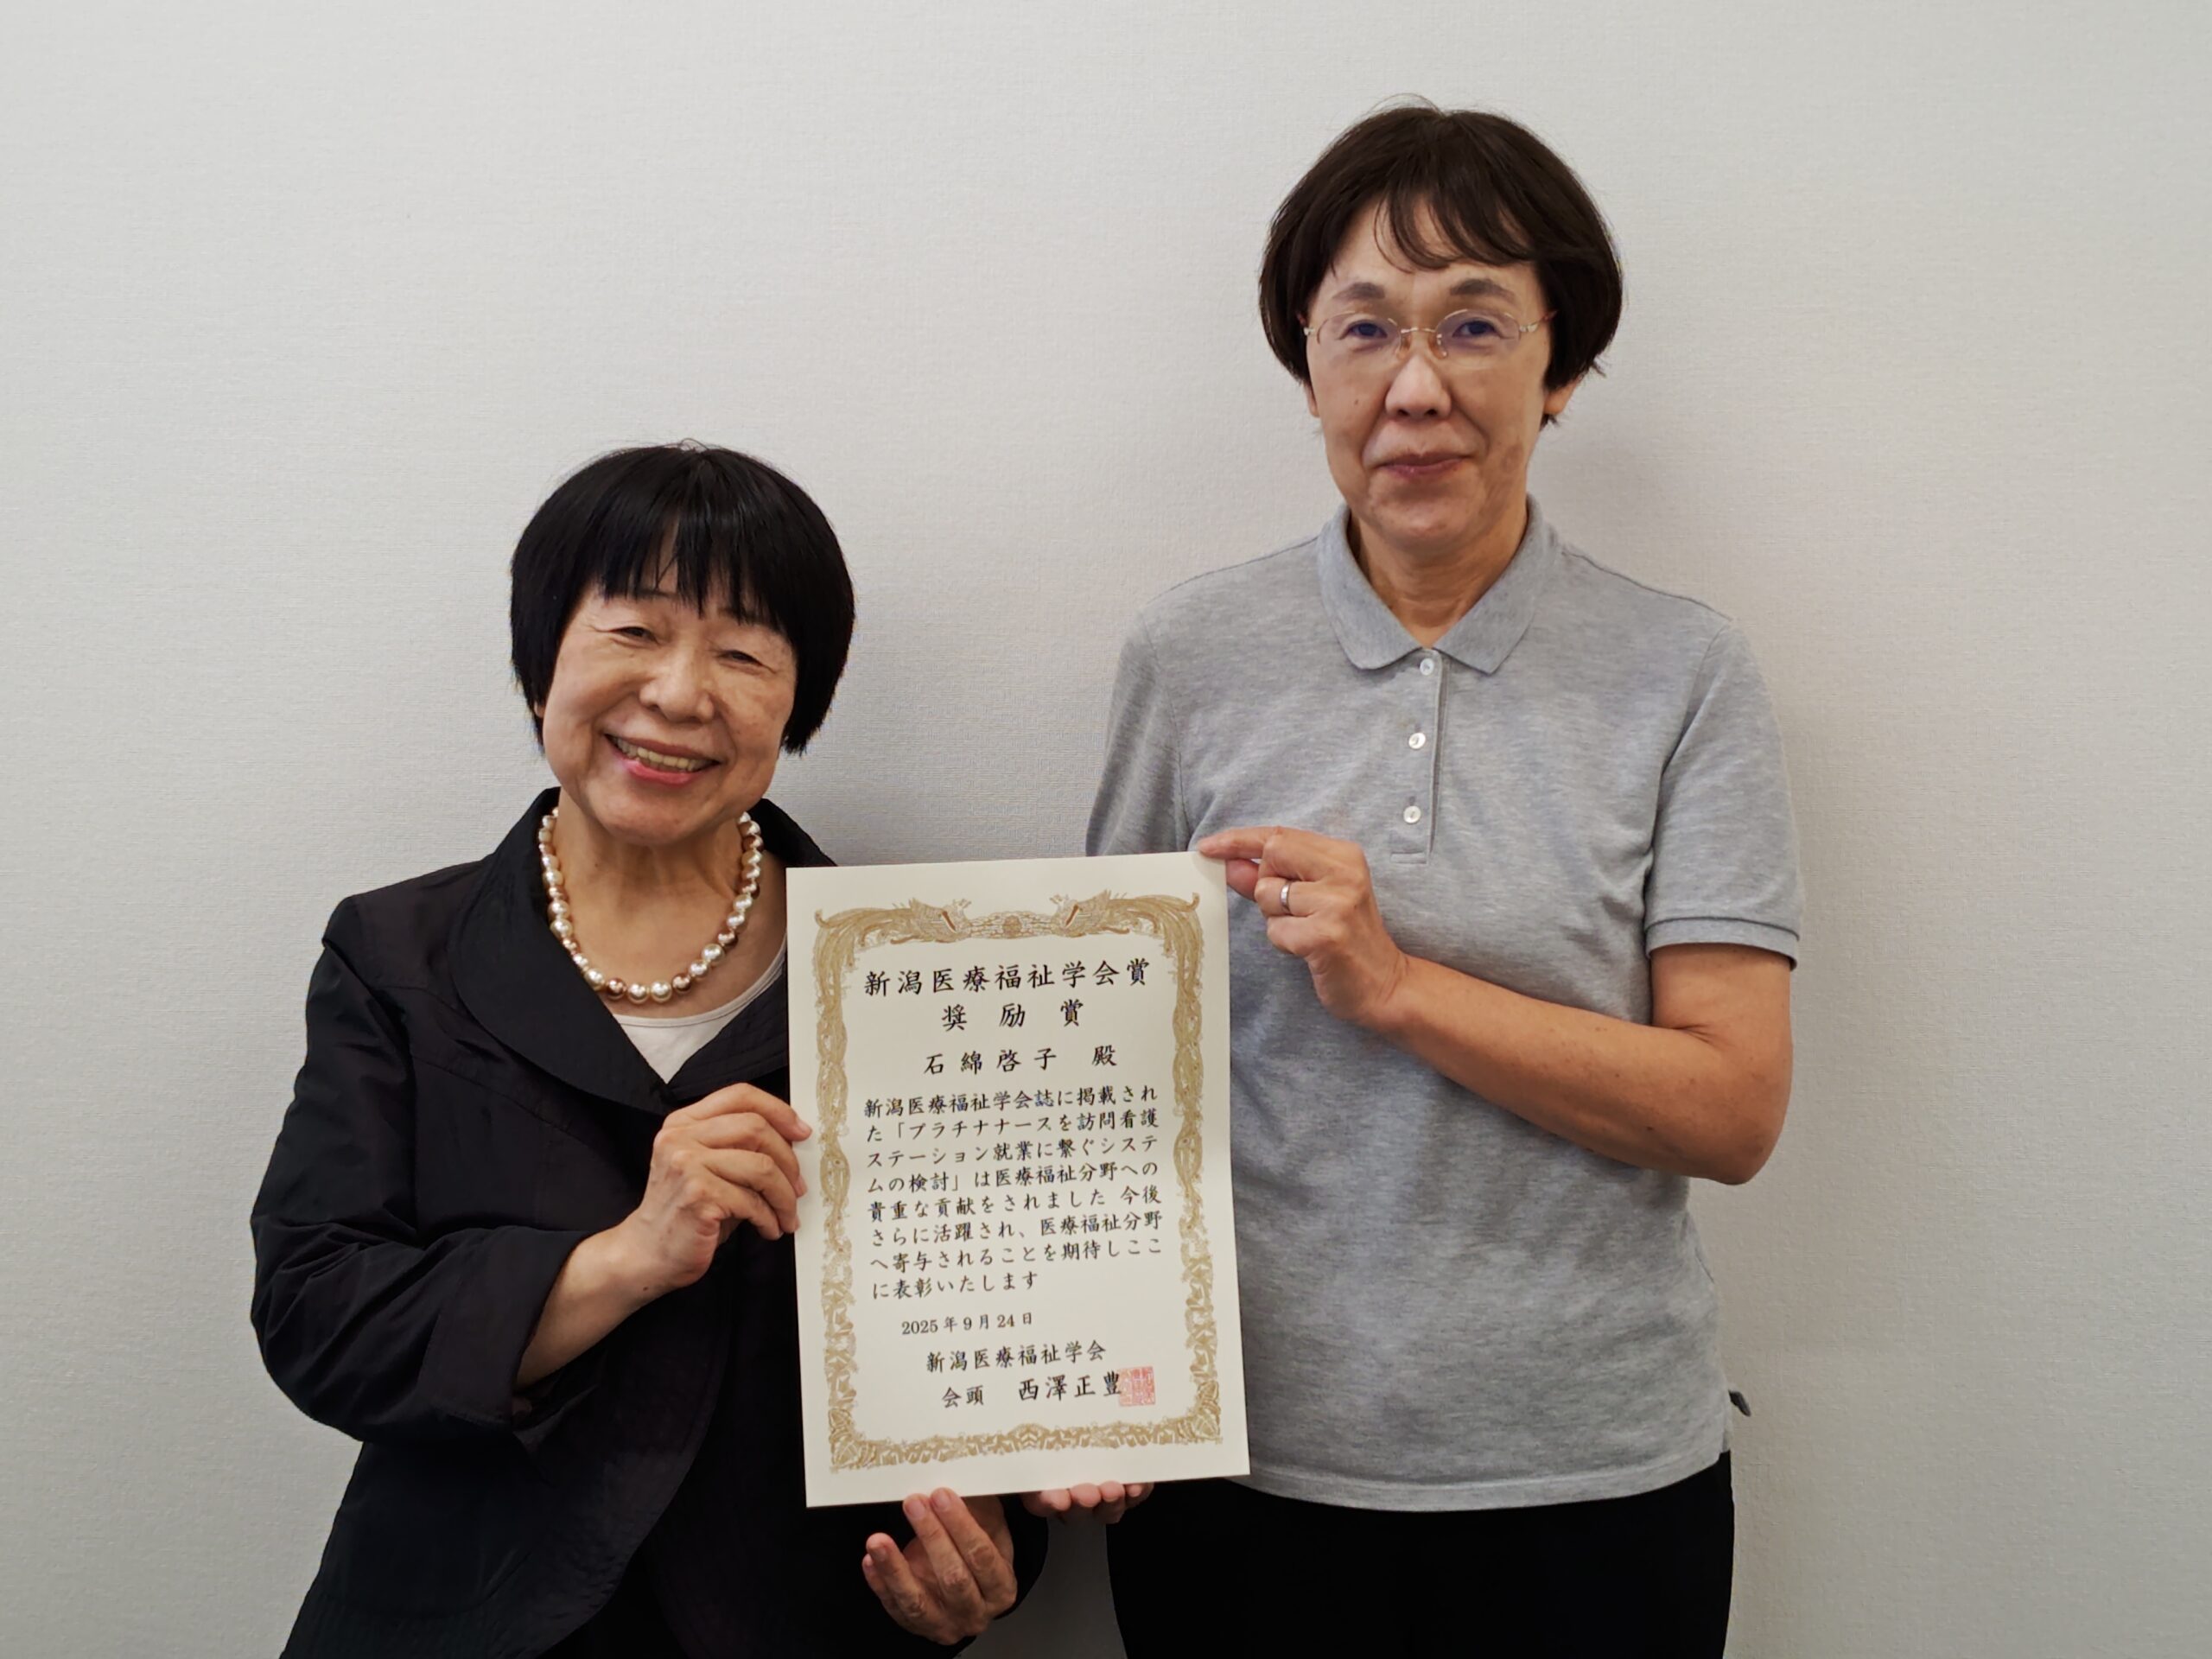 新潟医療福祉学会賞
奨励賞
石綿啓子 殿
新潟医療福祉学会誌に掲載され
た「プラチナナースを訪問看護
ステーション就業に繋ぐシステ
ムの検討」は医療福祉分野への
貴重な貢献をされました 今後
さらに活躍され、医療福祉分野
へ寄与されることを期待しここ
に表彰いたします
2025年9月24日
新潟医療福祉学会
会頭 西澤正豊